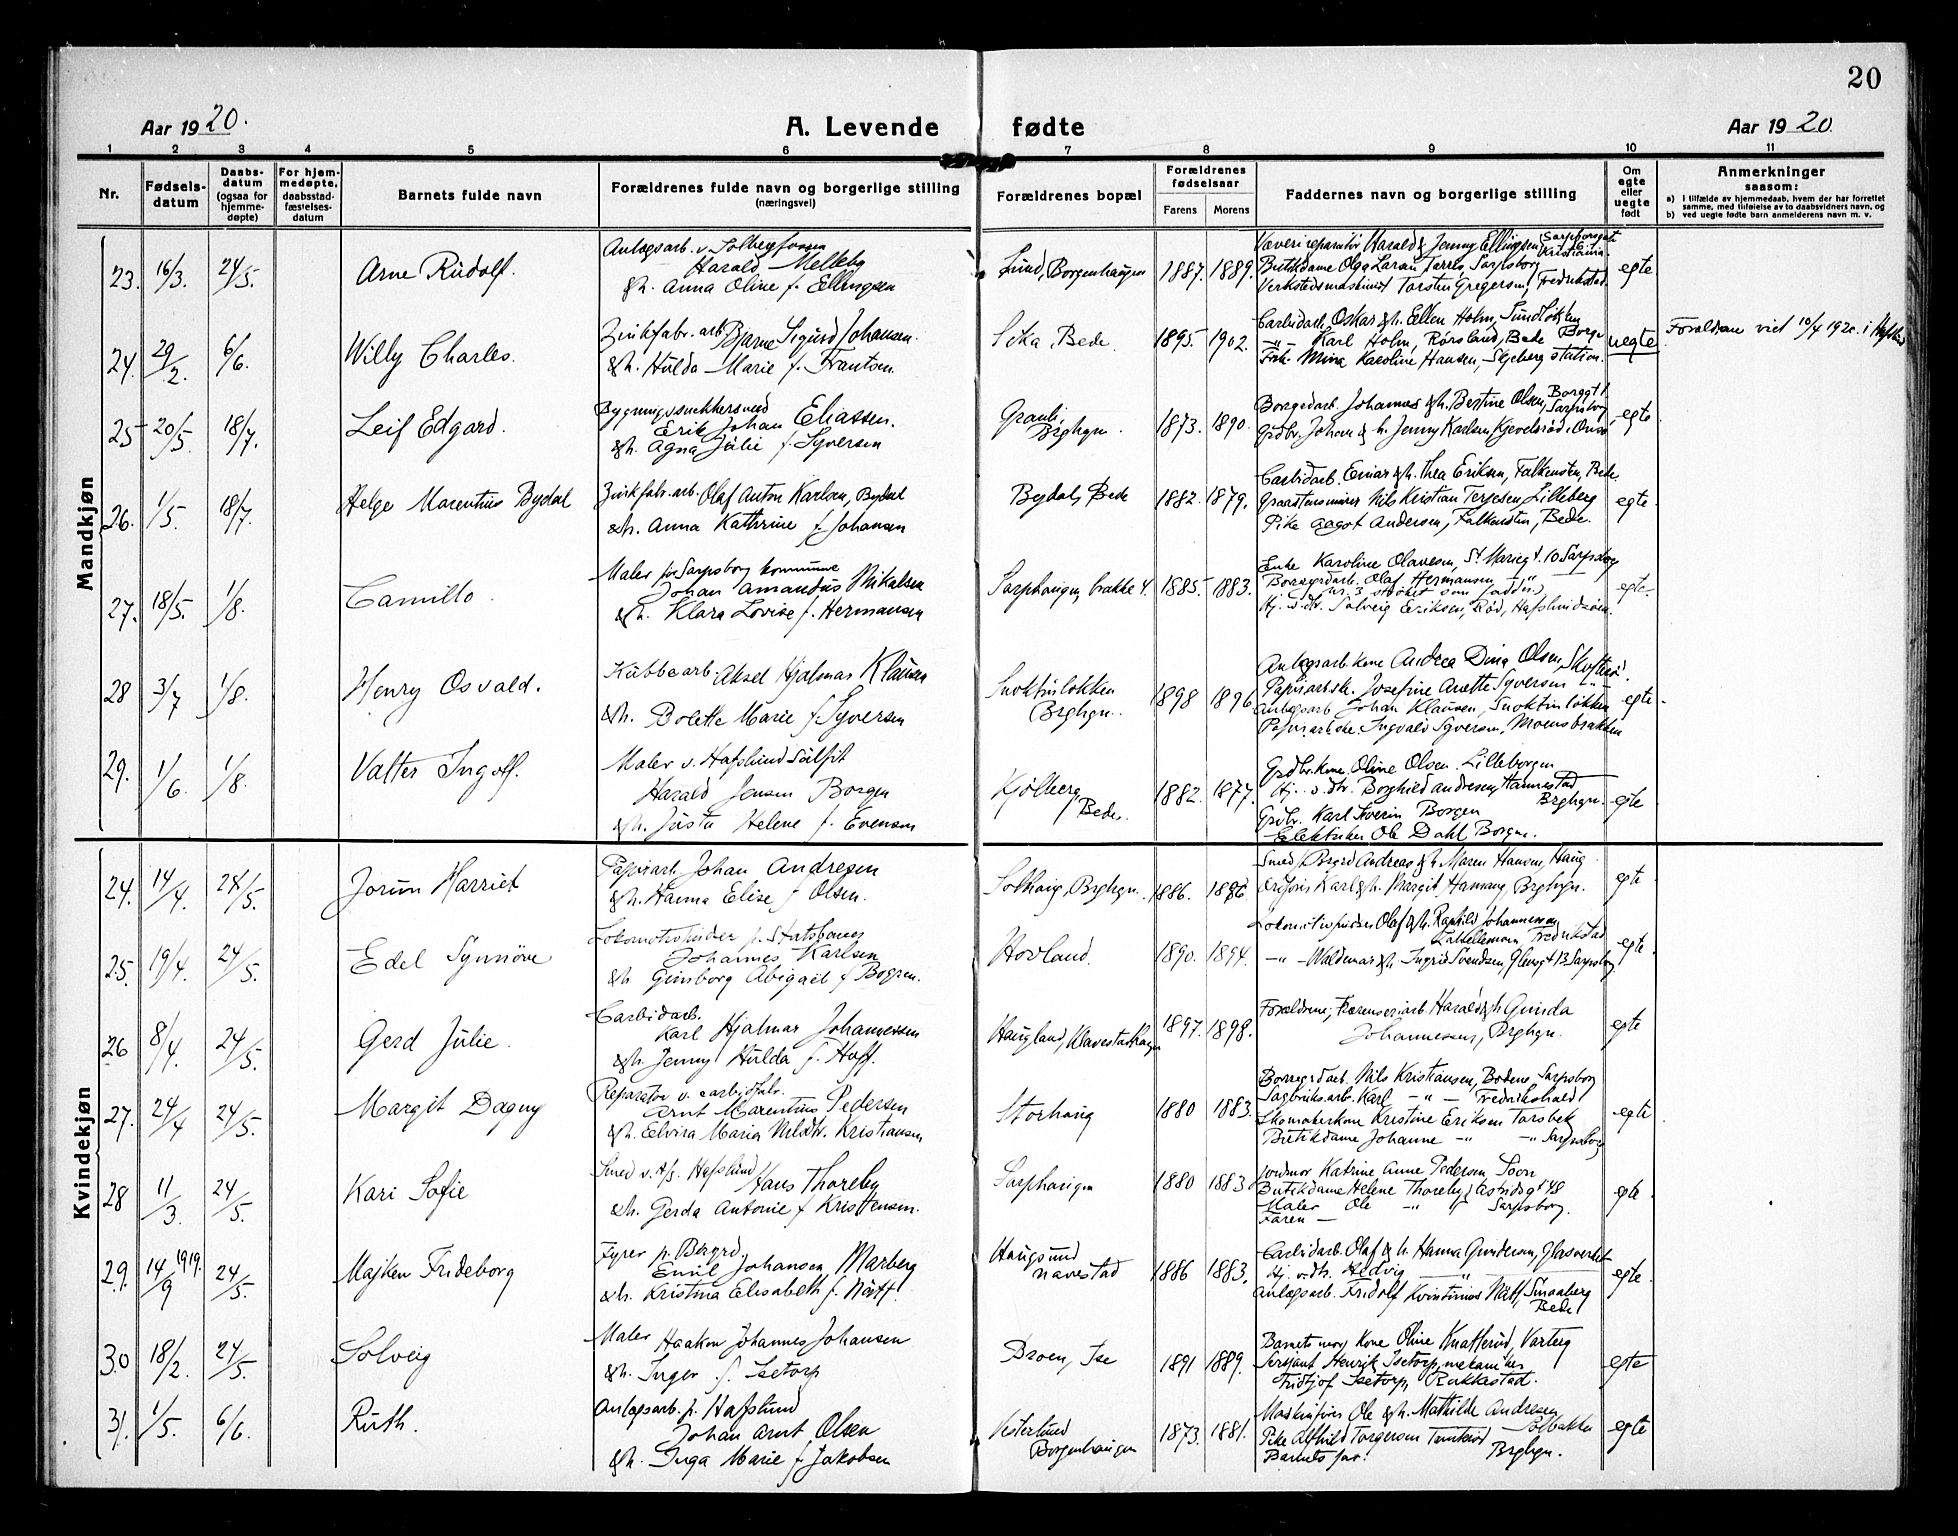 20
Aar 1920.
A. Levende fødte
Aar 1920.
1 2 3 4 5 6 7 8 9 10 11
Nr.
Fødsels-
datum
Daabs-
datum
(ogsaa for
hjemme-
døpte)
For hjem-
medøpte,
daabsstad-
fæstelses-
datum
Barnets fulde navn
Forældrenes fulde navn og borgerlige stilling
(næringsvei)
Forældrenes bopæl
Forældrenes
fødselsaar
Farens Morens
Faddernes navn og borgerlige stilling
Om
egte
eller
uegte
født
Anmerkninger
saasom:
a) I tilfælde av hjemmedaab, hvem der har forrettet
samme, med tilføielse av to daabsvidners navn, og
b) ved uegte fødte barn anmelderens navn m. v.
Mandkjøn
23. 16/3 24/5. Arne Rudolf.
Anlægsarb. v. Solbergfossen
Harald Melleby
& h. Anna Oline f. Ellingsen
Lund, Borgenhaugen 1887. 1889.
Væverireparatør Harald & Jenny Ellingsen, Sarpborggt.
Kristiania.
Butikdame Olga Tarres, Sarpsborg
Verkstedsmaskinist Torsten Gregersen, Fredrikstad.
egte
24. 29/2. 6/6. Willy Charles.
Zinkfabr. arb. Bjarne Sigurd Johansen.
& h. Hulda Marie f. Frantsen.
Sika, Bede. 1895. 1902.
Carbidarb. Oskar & h. Ellen Holm, Sundløkken
Borge
-"- Karl Holm, Rørsland, Bede
Frk. Mina Karoline Hansen, Skjeberg station.
uegte
Forældrene viet 10/4 1920 i Hafslund
25 20/5. 18/7. Leif Edgard.
Bygningssnekkersvend
Erik Johan Eliassen.
& h. Agna Julie f. Syversen
Granli, Brghgn. 1873. 1890.
Borregdarb. Johannes & h. Bestine Olsen, Borggt 1
Sarpsborg
Grdbr. Johan & h. Jenny Karlsen,
egte
26. 1/5. 18/7. Helge Marentius Bydal
Zinkfabr. arb. Olaf Anton Karlsen, Bydal
& h. Anna Kathrine f. Johansen
Bydal, Bede 1882. 1879.
Carbidarb. Einar & h. Thea Eriksen, Falkensten, Bede.
Graastensmurer Nils Kristian Terjesen, Lilleberg
Pike Aagot Andersen, Falkensten, Bede.
egte
27. 18/5. 1/8. Camillo.
Maler for Sarpsborg kommune
Johan Amandus Mikalsen
& h. Klara Lovise f. Hermansen
Sarphaugen, brakke 4. 1885. 1883.
Enke Karoline Olavesen, St. Marieg t. 10 Sarpsborg
Borregrdarb. Olaf Hermansen, "
(nr. 3 strøket som fadder)
Hj. v. dt. Solveig Eriksen, Rød, Hafslundsøen.
egte.
28 3/7 1/8. Henry Osvald.
Kubbearb. Aksel Hjalmar Klausen
& h. Bolette Marie f. Syversen
Snoktinløkken
Brghgn. 1898 1896
Anlægsarb. kone Andrea Dina Olsen,
Papirarbske. Josefine Anette Syversen -"-
Anlægsarb. Johan Klausen, Snoktinløkken
Papirarbske. Ingvald Syversen, Moensbrakken
egte
29. 1/6. 1/8. Valter Ingolf.
Maler v. Hafslund Sulfit
Harald Jensen Borgen
& h. Justa Helene f. Evensen
Kjølberg,
Bede. 1882. 1877.
Grdbr. kone Oline Olsen. Lilleborgen
Hj. v. dtr. Borghild Andresen, Hannestad
Brghgn.
Grdbr. Karl Severin Borgen
Elektriker Ole Dahl Borgen.
egte
Kvindekjøn
24. 14/4. 24/5. Jorun Harriet
Papirarb. Johan Andresen
& h. Hanna Elise f. Olsen.
Solhaug, Brghgn. 1886. 1886.
Smed, Brgrd Andreas & h. Maren Hansen, Haug
Karl & h. Margit Hansen, Brghgn.
egte
25. 19/4. 24/5. Edel Synnøve
Lokomotivpudser p. Statsbanen
Johannes Karlsen
& h. Ginsborg Abigael f. Bogren.
Hovland. 1890. 1894.
Lokomotivpudser Olaf & h. Ragnhild Johannessen
Fredrikstad
-"- Waldemar & h. Ingrid Svendsen, Glengt 13 Sarpsborg
egte.
26 8/4. 24/5. Gerd Julie.
Carbidarb.
Karl Hjalmar Johannessen
& h. Jenny Hulda f. Hoff.
Haugland, Navestadhaugen 1897. 1898.
Forældrene, Harald & h. Gunda
Johannessen, Brghgn.
egte
27. 24/4 24/5. Margit Dagny
Reparatør v. carbidfabr.
Arnt Marentius Pedersen
& h. Elvira Maria Nilsdtr. Kristiansen
Storhaug 1880 1883.
Borregrdarb. Nils Kristiansen, Bodens Sarpsborg
Sagbruksarb. Karl -"- Fredrikshald
Skomakerkone Kristine Eriksen Torsbek
Butikdame Johanne -"- -"- Sarpsborg
egte
28 11/3. 24/5. Kari Sofie
Smed v. A/S. Hafslund
Hans Thoreby
& h. Gerda Antonie f. Kristensen.
Sarphaugen 1880 1883
Jordmor Katrine Anne Pedersen, Soon
Butikdame Helene Thoreby, Astridsgt 48
Maler Ole -"- " Sarpsborg.
Faren -
egte
29. 14/9 1919. 24/5. Majken Frideborg
Fyrer p. Borgrd.
Emil Johansen Marberg
& h. Kristina Elisabeth f. Nätt.
Haugsund
Navestad 1886 1883.
Carbidarb. Olaf & h. Hanna Gundersen, Glasverket
Hj. v. dtr. Hedvig -"-
Anlægsarb. Fridolf Kvintinius Nätt, Smaaberg
Bede
egte.
30 18/2. 24/5. Solveig
Maler Haakon Johannes Johansen
& h. Inger f. Isetorp
Broen, Ise 1891 1889.
Barnets mor, Kone Oline Knatterud, Varteig
Sersjant Henrik Isetorp, mekaniker
Fridtjof Isetorp, Rakkestad.
egte
31. 1/5. 6/6. Ruth.
Anlægsarb. p. Hafslund
Johan Arnt Olsen
& h. Inga Marie f. Jakobsen
Vesterlund
Borgenhaugen 1873. 1881.
Maskinfører Ole & h. Mathilde Andresen
Solbakken
Pike Alfhild Torgersen
Brghgn.
Barnets far.
egte